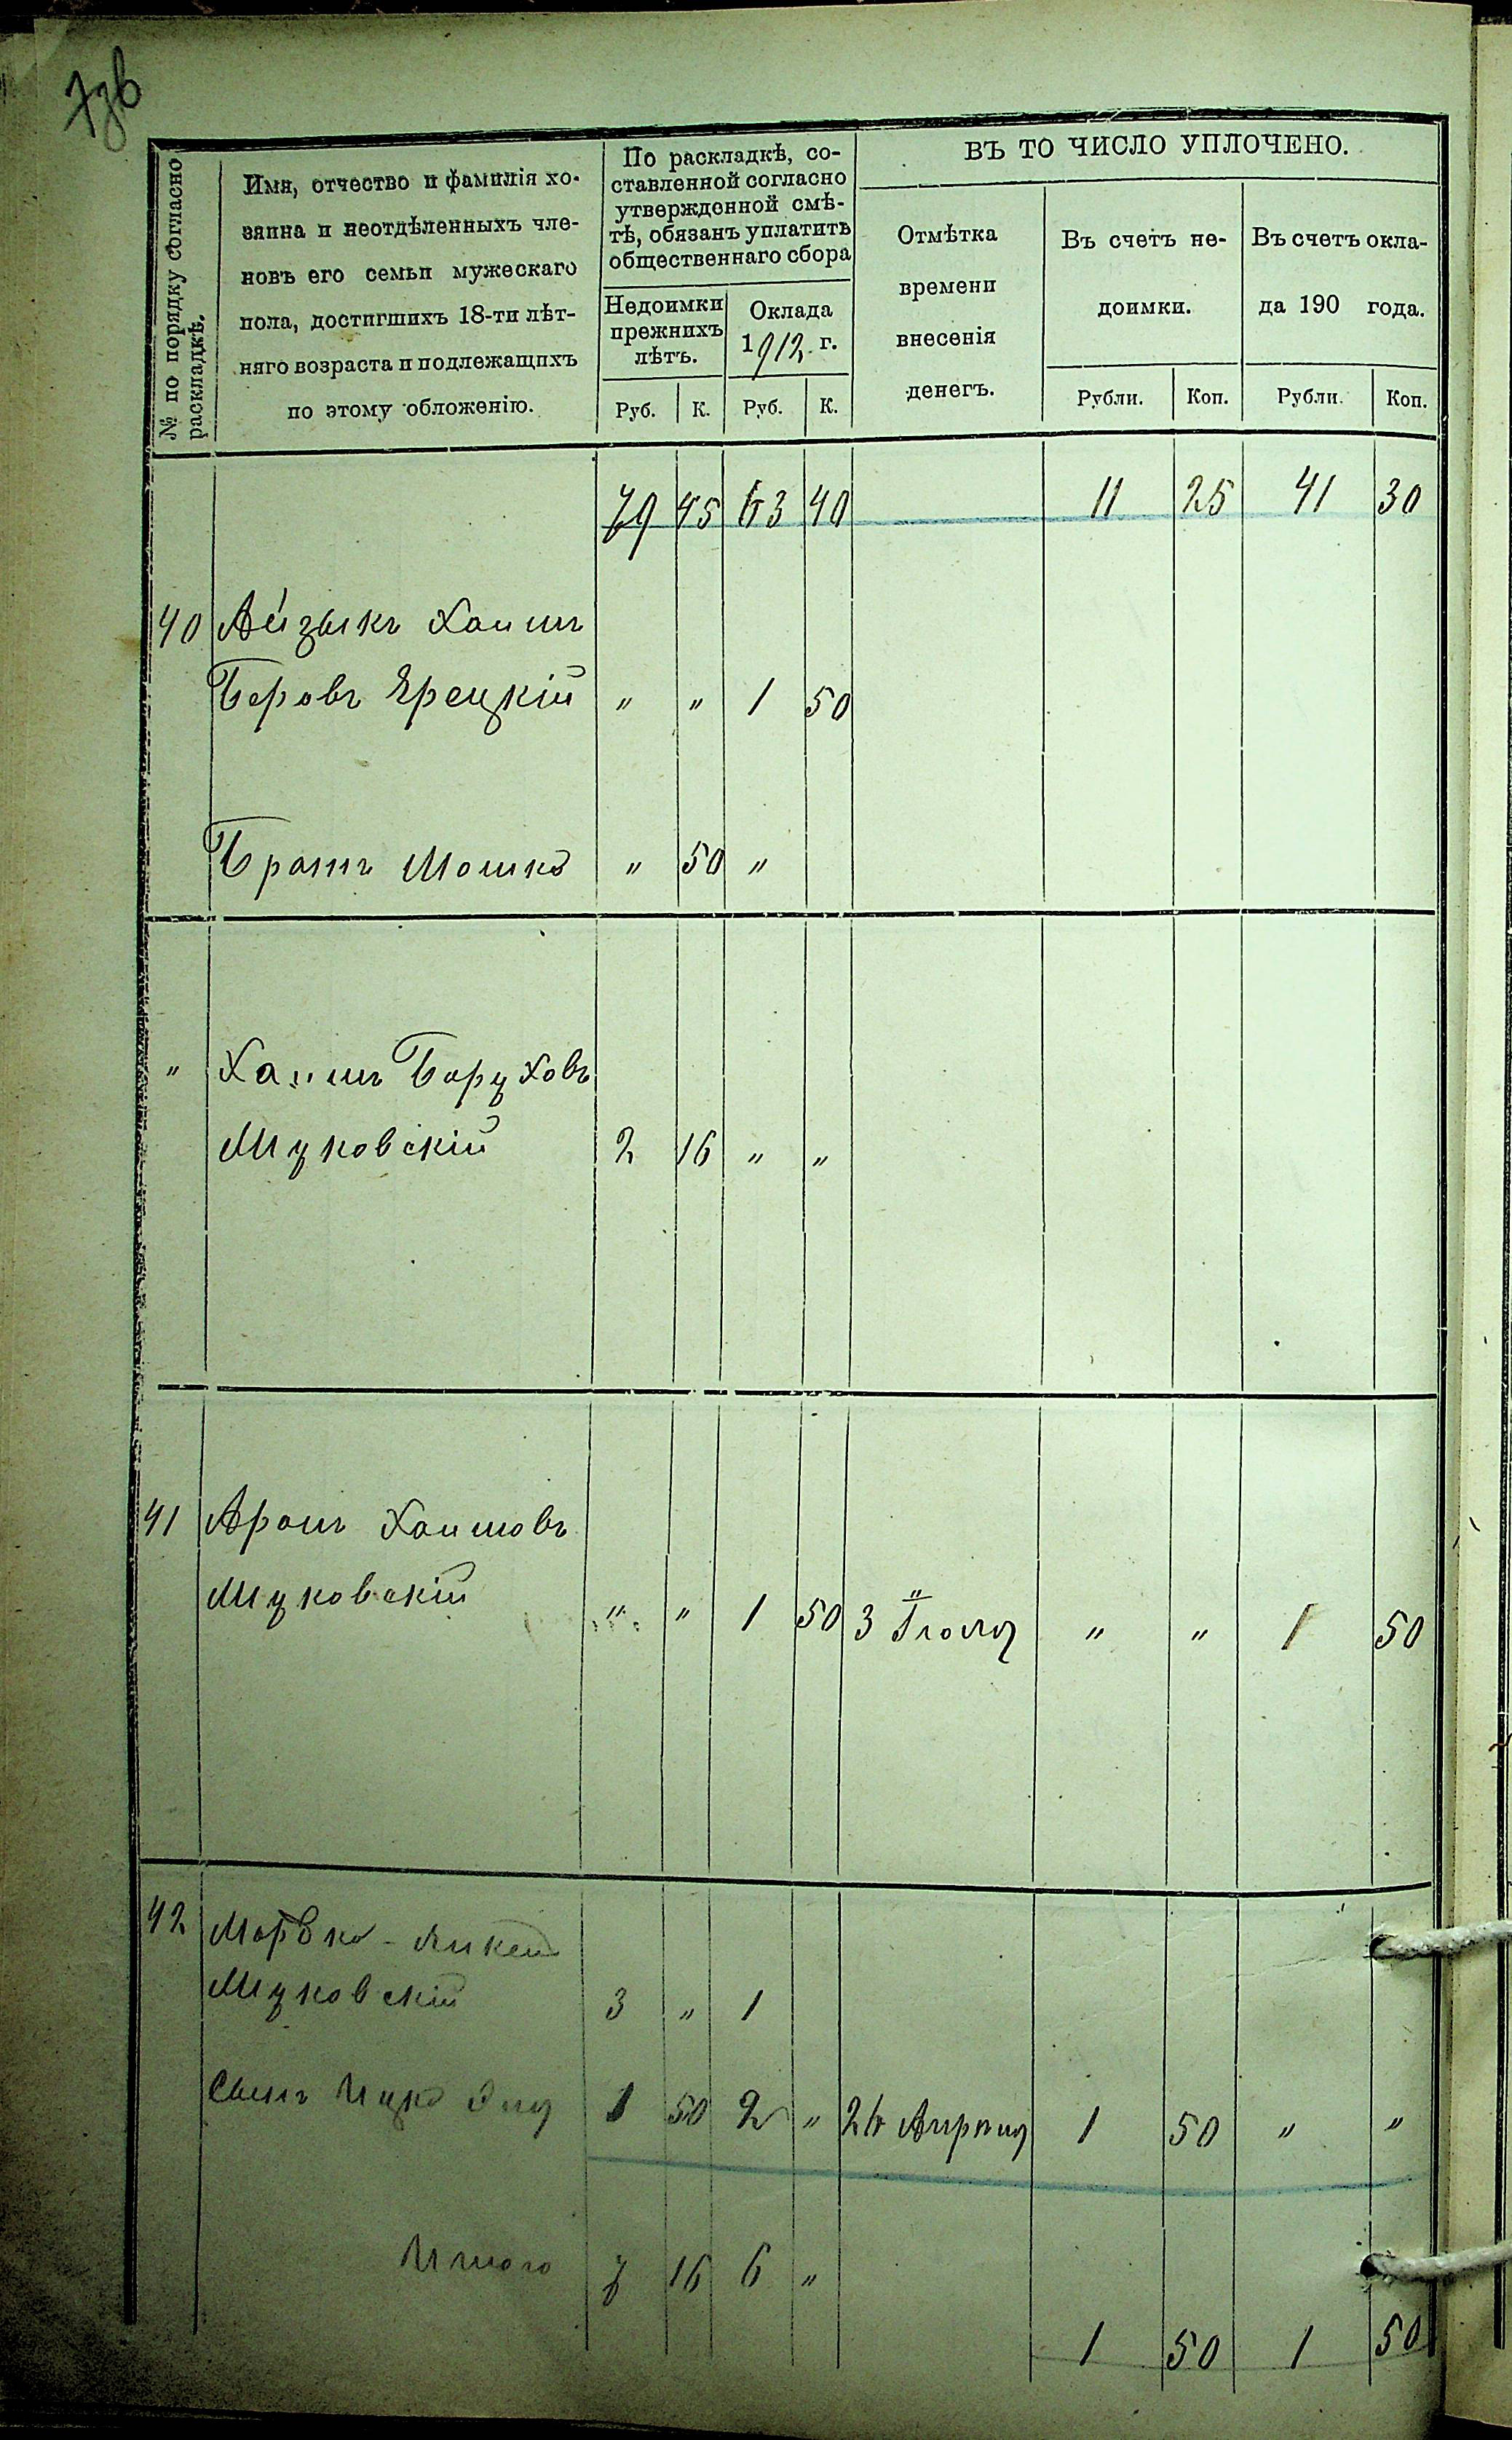 7зв
№ по порядку согласно раскладкѣ.
Имя, отчество и фамилія хо-
зяина и неотдѣленныхъ чле-
новъ его семьи мужескаго
пола, достигшихъ 18-ти лѣт-
няго возраста и подлежащихъ
по этому обложенію.
По раскладкѣ, со-
ставленной согласно
утвержденной смѣ-
тѣ, обязанъ уплатить
общественнаго сбора
Недоимки
прежнихъ
лѣтъ.
Оклада
1912 г.
Руб. К. Руб. К.
ВЪ ТО ЧИСЛО УПЛОЧЕНО.
Отмѣтка
времени
внесенія
денегъ.
Въ счетъ не-
доимки.
Въ счетъ окла-
да 190 года.
Рубли. Коп. Рубли. Коп.
79 45 63 40 11 25 41 30
40 Айзыкъ Хаимъ
Беровъ Ерецкій " " 1 50
Братъ Мошко " 50 "
" Хаимъ Боруховъ
Муковскій 2 16 " "
41 Аронъ Хаимовъ
Муковскій " " 1 50 3 Іюля " " 1 50
42 Мовко-
Муковскій 3 " 1
Сынъ Ицко 1 50 2 " 26 Апрѣля 1 50 " "
Итого 7 16 6 "
1 50 1 50